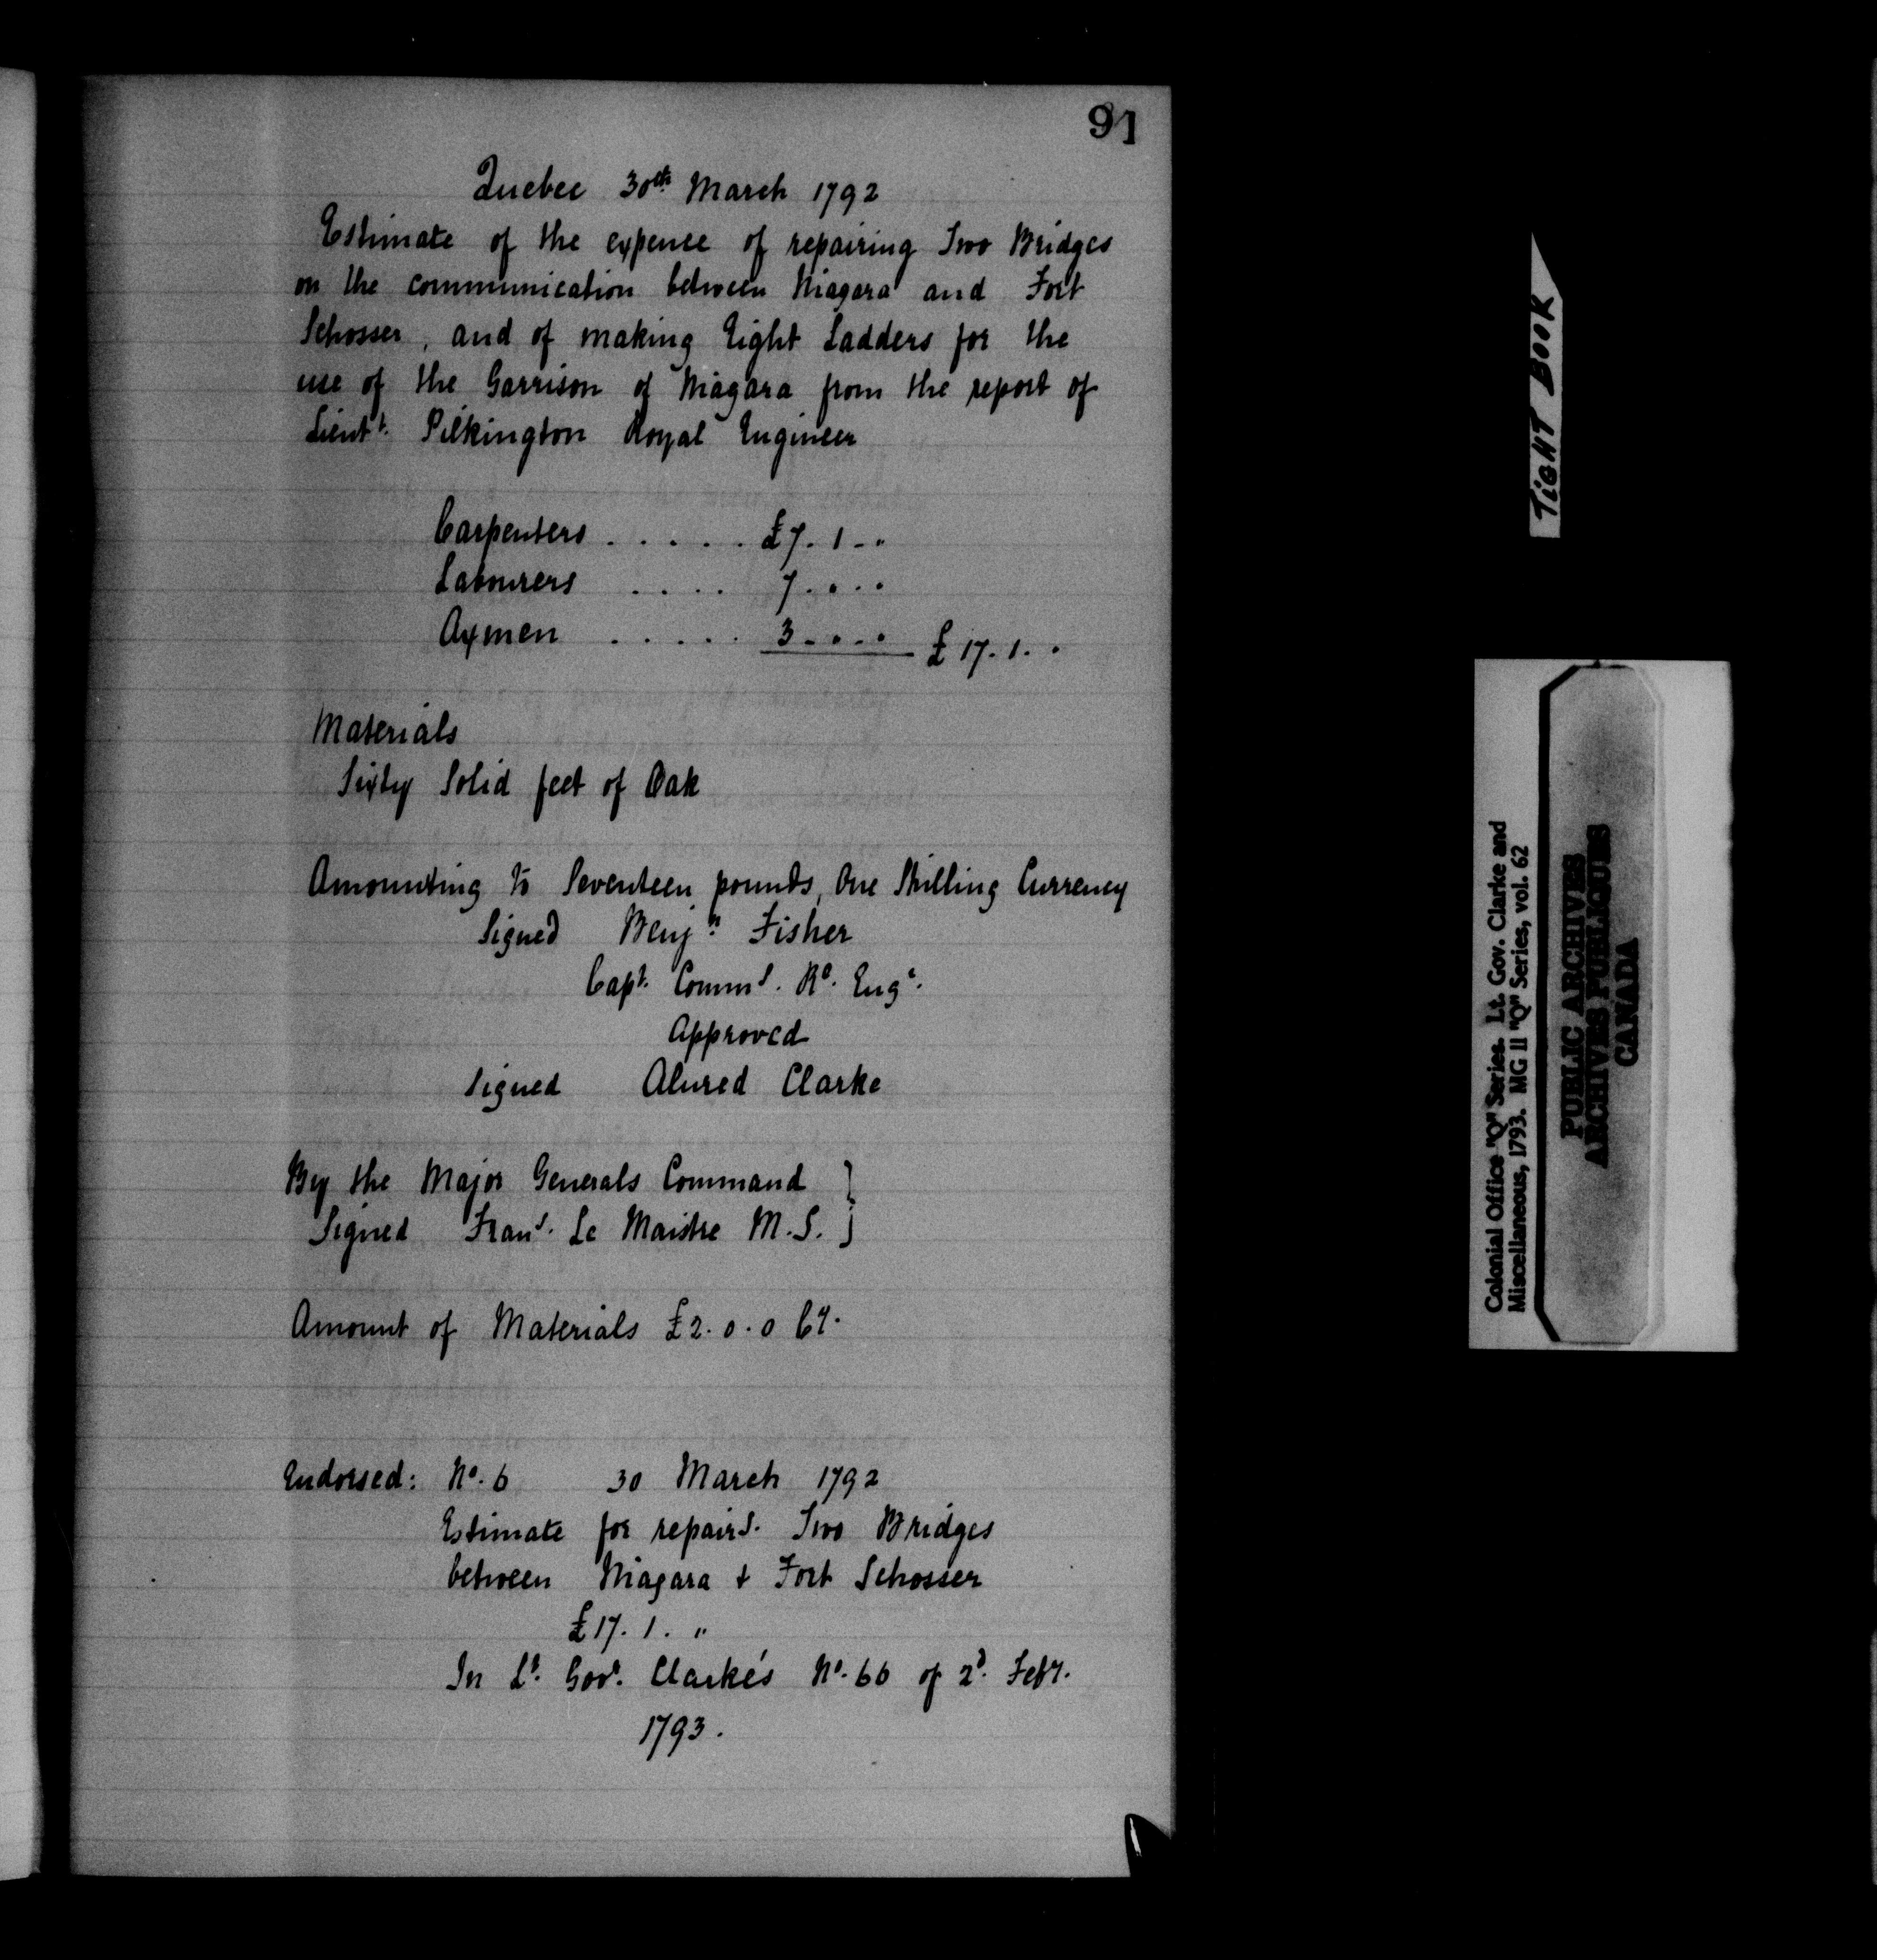 91
Quebec 30th March 1792
Estimate of the expence of repairing Two Bridges
on the communication between Niagara and Fort
Schosser, and of making Eight Ladders for the
use of the Garrison of Niagara from the report of
Lieutt. Pilkington Royal Engineer
Carpenters . . . . . £7. 1 - "
Labourers . . . . 7. " . "
Axmen . . . . . 3 - " - " £17. 1. "
Materials
Sixty Solid feet of Oak
Amounting to Seventeen pounds, One Shilling Currency
Signed Benjn. Fisher
Capt. Commd. Rl. Engr.
Approved
Signed Alured Clarke
By the Major Generals Command }
Signed Frans. Le Maistre M.S. }
Amount of Materials £2. 0. 0 Cy.
Endorsed: No. 6 30 March 1792
Estimate for repairs. Two Bridges
between Niagara & Fort Schosser
£17. 1. "
In Lt. Govr. Clarke's No. 66 of 2d. Feby.
1793.
TIGHT BOOK
Colonial Office "Q" Series. Lt. Gov. Clarke and
Miscellaneous, 1793. MG 11 "Q" Series, vol. 62
PUBLIC ARCHIVES
ARCHIVES PUBLIQUES
CANADA